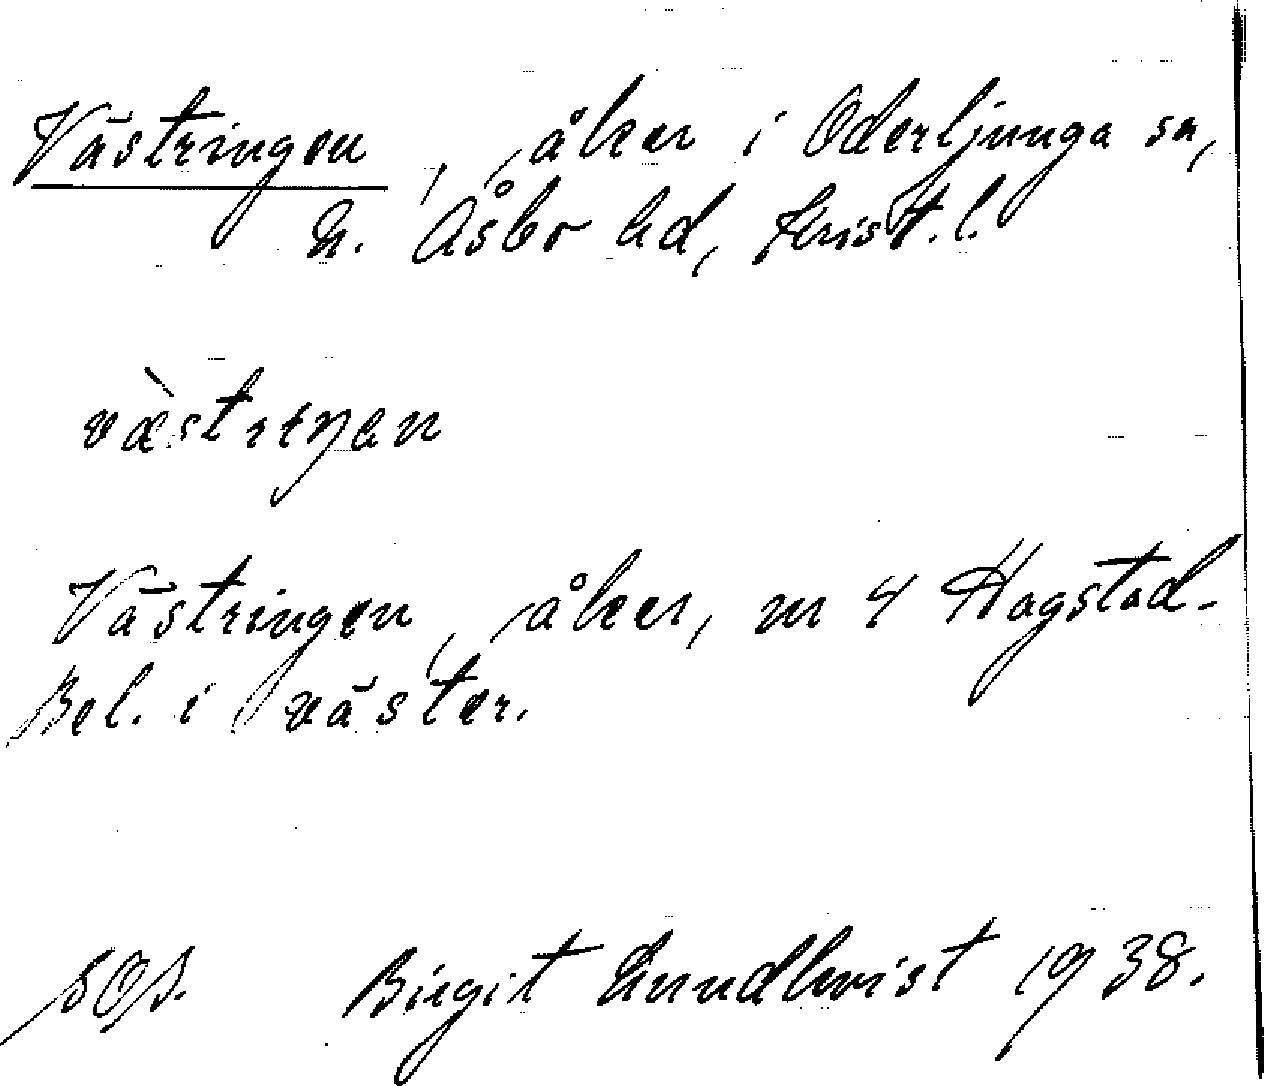 Västringen, åker i Oderljunga sn,
N. Åsbo hd, Krist. l.
væ̀strɪŋən
Västringen, åker, nr 4 Hagstad.
Bel. i väster.
Birgit Lundkvist 1938.